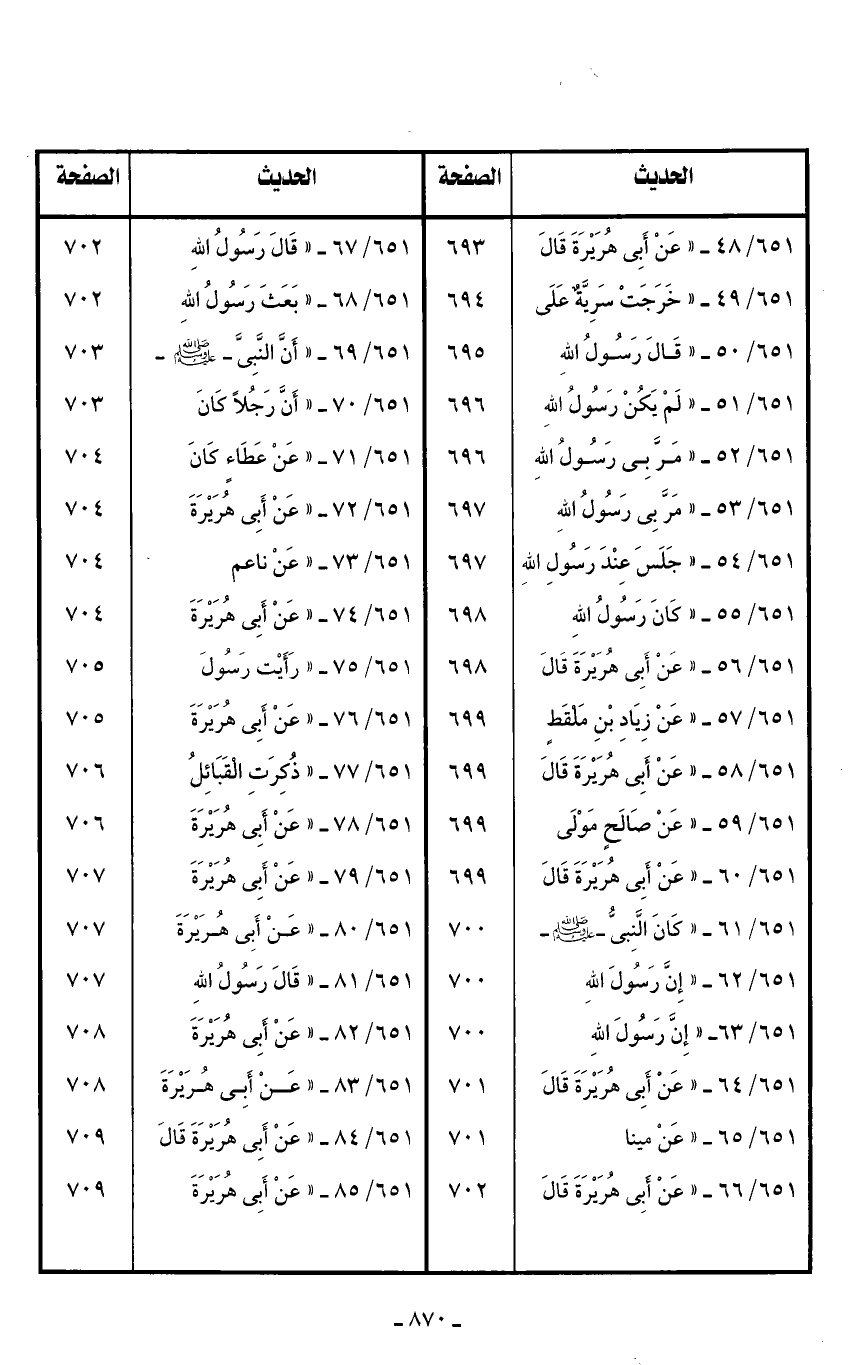 الحديث الصفحة الحديث الصفحة
٤٨/٦٥١ ـ « عَنْ أَبِى هُرَيْرَةَ قَالَ ٦٩٣ ٦٧/٦٥١ ـ « قَالَ رَسُولُ اللهِ ٧٠٢
٤٩/٦٥١ ـ « خَرَجَتْ سَرِيَّةٌ عَلَى ٦٩٤ ٦٨/٦٥١ ـ « بَعَثَ رَسُولُ اللهِ ٧٠٢
٥٠/٦٥١ ـ « قَالَ رَسُولُ اللهِ ٦٩٥ ٦٩/٦٥١ ـ « أَنَّ النَّبِىَّ ـ ﷺ ـ ٧٠٣
٥١/٦٥١ ـ « لَمْ يَكُنْ رَسُولُ اللهِ ٦٩٦ ٧٠/٦٥١ ـ « أَنَّ رَجُلاً كَانَ ٧٠٣
٥٢/٦٥١ ـ « مَرَّ بِى رَسُولُ اللهِ ٦٩٦ ٧١/٦٥١ ـ « عَنْ عَطَاءٍ كَانَ ٧٠٤
٥٣/٦٥١ ـ « مَرَّ بِى رَسُولُ اللهِ ٦٩٧ ٧٢/٦٥١ ـ « عَنْ أَبِى هُرَيْرَةَ ٧٠٤
٥٤/٦٥١ ـ « جَلَسَ عِنْدَ رَسُولِ اللهِ ٦٩٧ ٧٣/٦٥١ ـ « عَنْ ناعم ٧٠٤
٥٥/٦٥١ ـ « كَانَ رَسُولُ اللهِ ٦٩٨ ٧٤/٦٥١ ـ « عَنْ أَبِى هُرَيْرَةَ ٧٠٤
٥٦/٦٥١ ـ « عَنْ أَبِى هُرَيْرَةَ قَالَ ٦٩٨ ٧٥/٦٥١ ـ « رَأَيْت رَسُولَ ٧٠٥
٥٧/٦٥١ ـ « عَنْ زِيَادِ بْنِ مَلْقَطٍ ٦٩٩ ٧٦/٦٥١ ـ « عَنْ أَبِى هُرَيْرَةَ ٧٠٥
٥٨/٦٥١ ـ « عَنْ أَبِى هُرَيْرَةَ قَالَ ٦٩٩ ٧٧/٦٥١ ـ « ذُكِرَتِ الْقَبَائِلُ ٧٠٦
٥٩/٦٥١ ـ « عَنْ صَالَحٍ مَوْلَى ٦٩٩ ٧٨/٦٥١ ـ « عَنْ أَبِى هُرَيْرَةَ ٧٠٦
٦٠/٦٥١ ـ « عَنْ أَبِى هُرَيْرَةَ قَالَ ٦٩٩ ٧٩/٦٥١ ـ « عَنْ أَبِى هُرَيْرَةَ ٧٠٧
٦١/٦٥١ ـ « كَانَ النَّبِىُّ ـ ﷺ ـ ٧٠٠ ٨٠/٦٥١ ـ « عَنْ أَبِى هُرَيْرَةَ ٧٠٧
٦٢/٦٥١ ـ « إِنَّ رَسُولَ اللهِ ٧٠٠ ٨١/٦٥١ ـ « قَالَ رَسُولُ اللهِ ٧٠٧
٦٣/٦٥١ ـ « إِنَّ رَسُولَ اللهِ ٧٠٠ ٨٢/٦٥١ ـ « عَنْ أَبِى هُرَيْرَةَ ٧٠٨
٦٤/٦٥١ ـ « عَنْ أَبِى هُرَيْرَةَ قَالَ ٧٠١ ٨٣/٦٥١ ـ « عَنْ أَبِى هُرَيْرَةَ ٧٠٨
٦٥/٦٥١ ـ « عَنْ مينا ٧٠١ ٨٤/٦٥١ ـ « عَنْ أَبِى هُرَيْرَةَ قَالَ ٧٠٩
٦٦/٦٥١ ـ « عَنْ أَبِى هُرَيْرَةَ قَالَ ٧٠٢ ٨٥/٦٥١ ـ « عَنْ أَبِى هُرَيْرَةَ ٧٠٩
ـ ٨٧٠ ـ